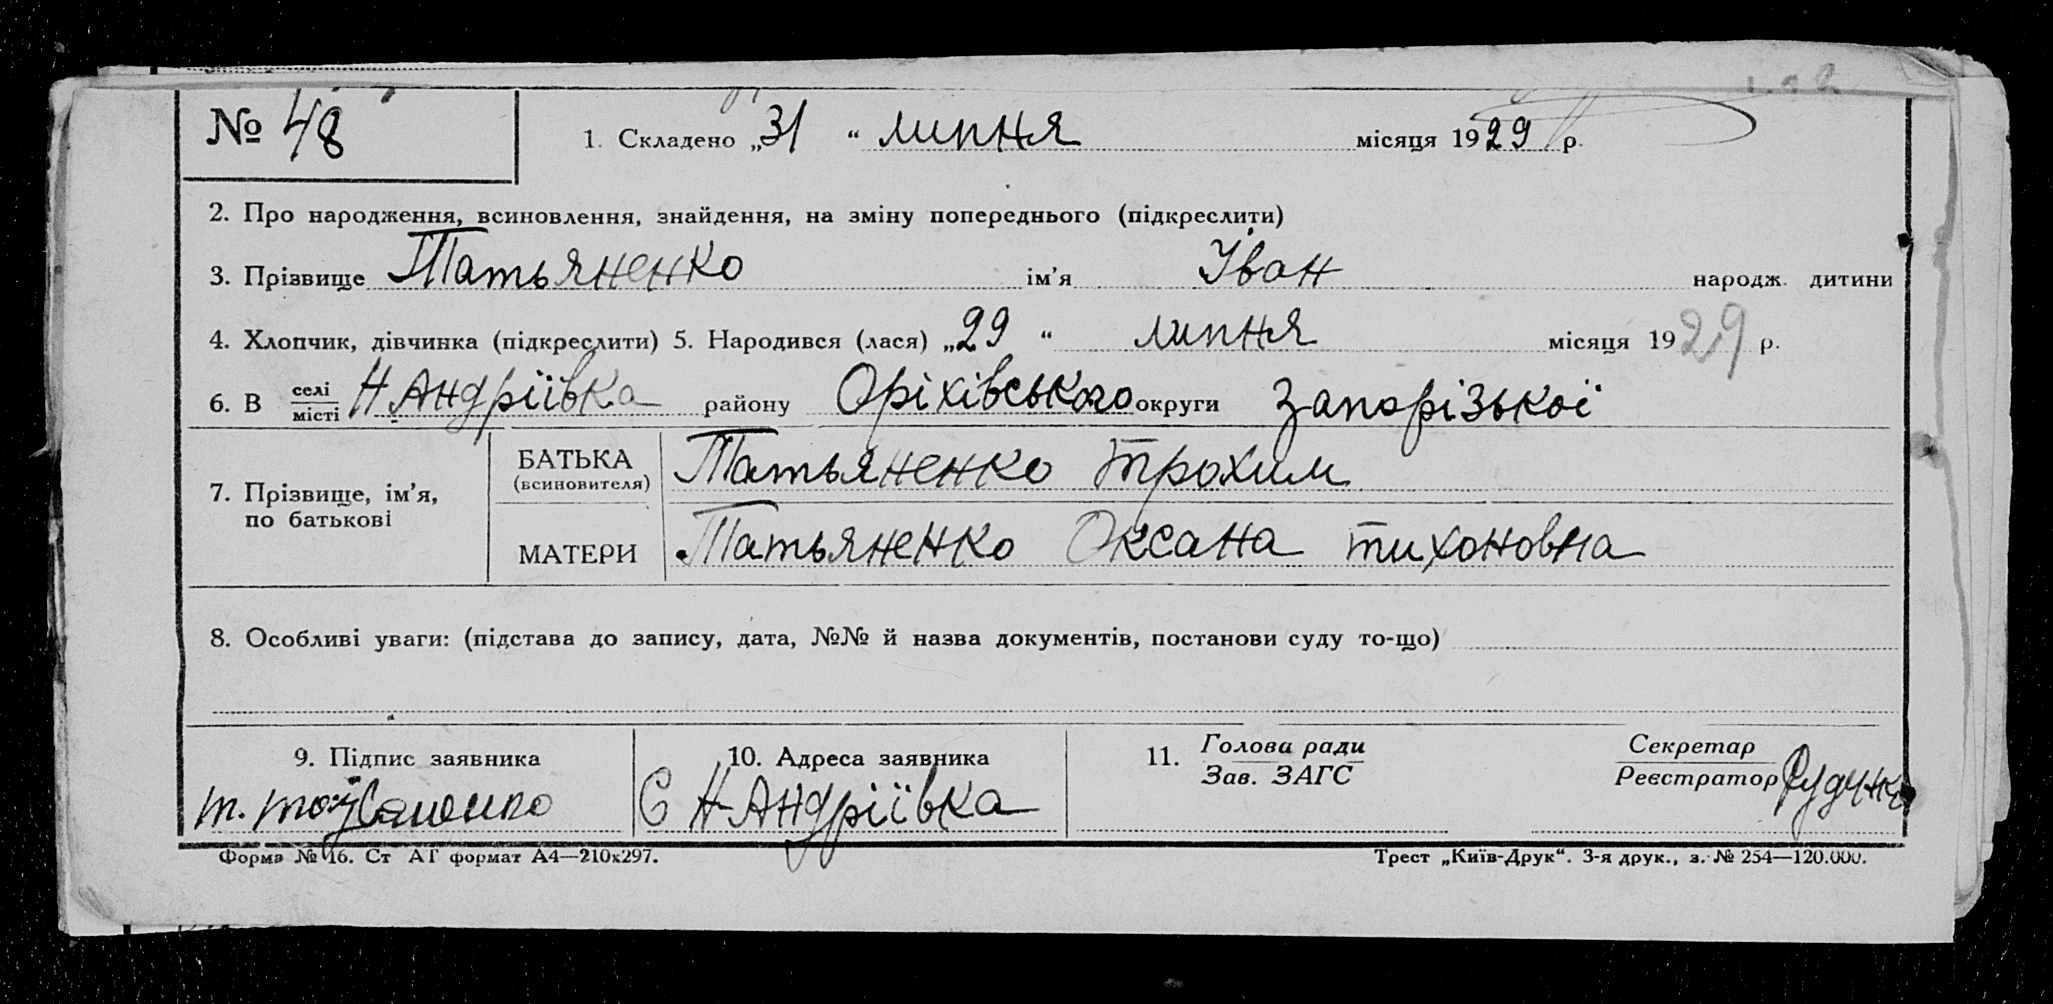 № 48
1. Складено „31“ липня місяця 1929 р.
2. Про народження, всиновлення, знайдення, на зміну попереднього (підкреслити)
3. Прізвище Татьяненко ім'я Іван народж. дитини
4. Хлопчик, дівчинка (підкреслити) 5. Народився (лася) „29“ липня місяця 1929 р.
6. В селі місті Н Андріївка району Оріхівського округи Запорізької
7. Прізвище, ім'я, по батькові
БАТЬКА (всиновителя) Татьяненко Трохим
МАТЕРИ Татьяненко Оксана тихоновна
8. Особливі уваги: (підстава до запису, дата, №№ й назва документів, постанови суду то-що)
9. Підпис заявника
10. Адреса заявника
С Н-Андріївка
11. Голова ради
Зав. ЗАГС
Секретар
Реєстратор
Форма № 16. Ст АГ формат А4—210х297.
Трест „Київ-Друк“. 3-я друк., з. № 254—120.000.